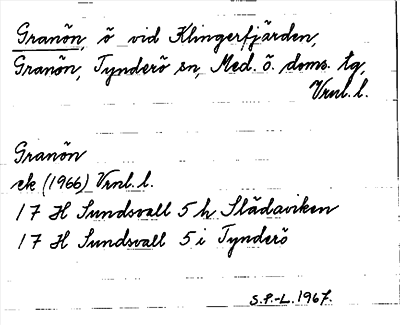 Granön, ö vid Klingerfjärden,
Granön, Tynderö sn, Med. ö. doms. tg,
Vrnl. l.
Granön
ek (1966) Vrnl. l.
17 H Sundsvall 5 h Slädaviken
17 H Sundsvall 5 i Tynderö
S.P.-L. 1967.